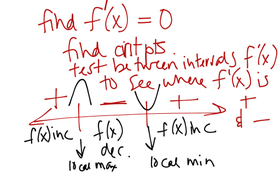 find f'(x) = 0
find crit pts.
test between intervals f'(x)
to see where f'(x) is
+ — + + & —
f(x) inc f(x) dec. f(x) inc
local max local min